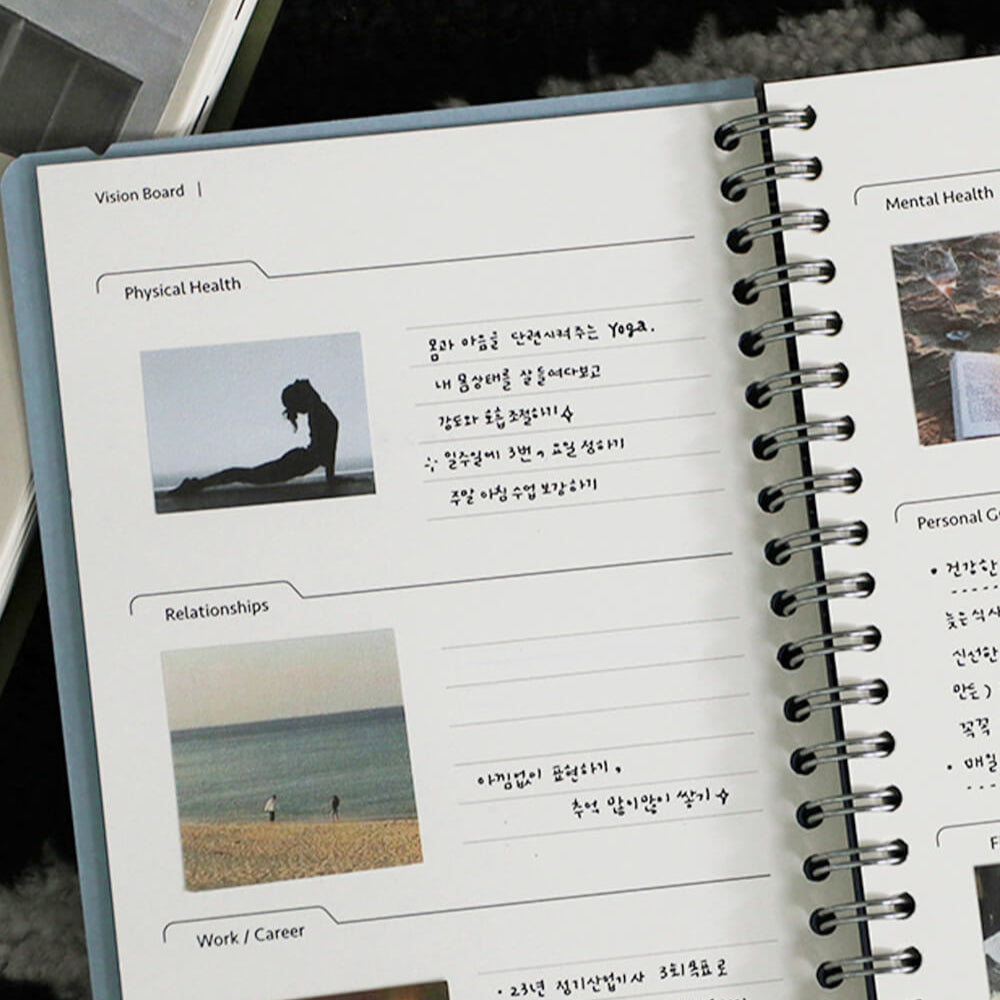 Vision Board |
Physical Health
몸과 마음을 단련시켜주는 Yoga.
내 몸상태를 잘 들여다보고
강도와 호흡 조절하기
일주일에 3번, 요일 정하기
주말 아침 수업 보강하기
Relationships
아낌없이 표현하기,
추억 많이많이 쌓기
Work / Career
• 23년 정기산업기사 3회 목표로
Mental Health
Personal G
• 건강한
늦은 식사
신선한
만든)
꼭꼭
• 매일
F